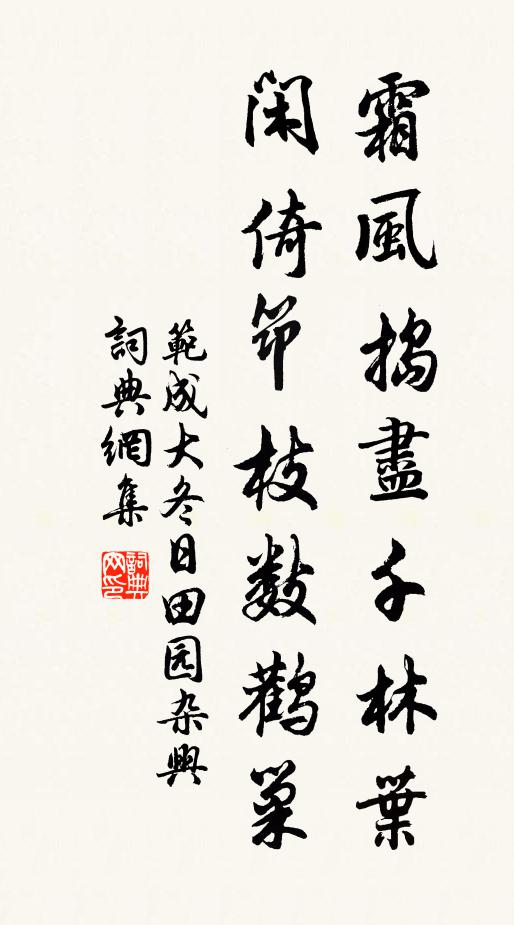 霜風搗盡千林葉
閑倚筇枝数鸛巢
範成大冬日田园杂興
詞典網集
詞典网印